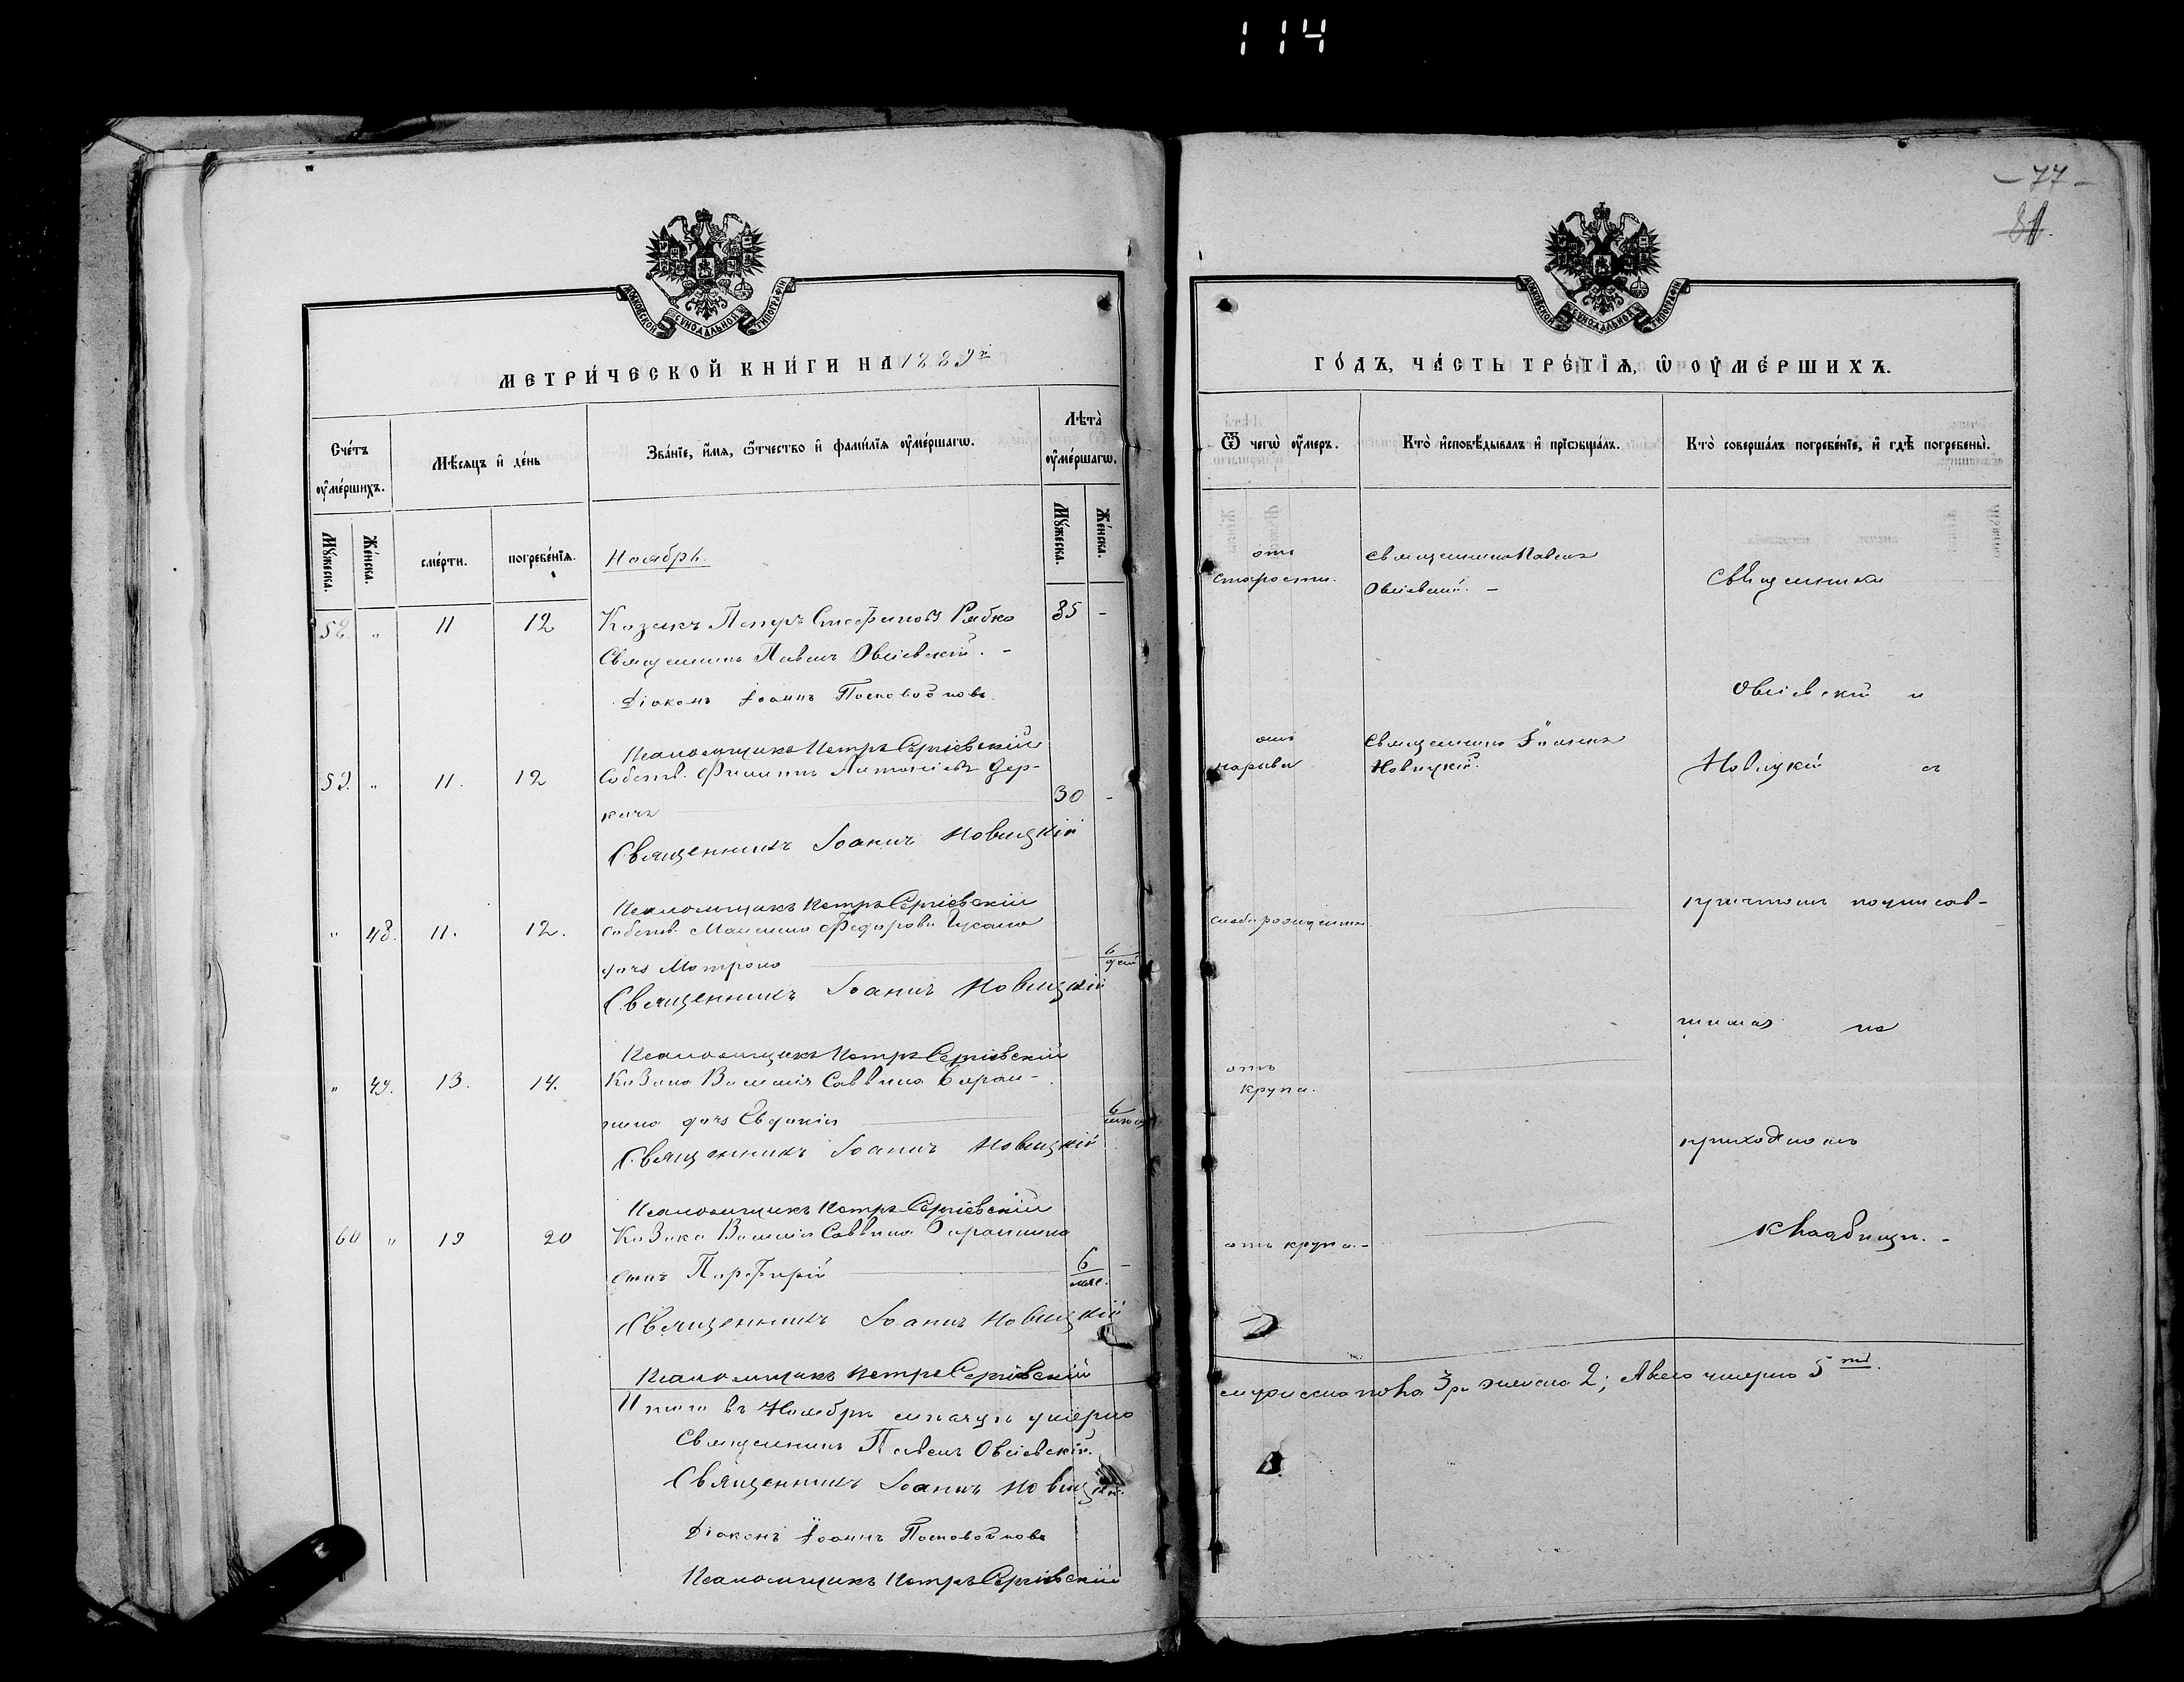 114
– 77 –
81.
МОСКОВСКОЙ СѴНОДАЛЬНОЙ ТИПОГРАФІИ
МЕТРИ́ЧЕСКОЙ КНИ́ГИ НА 1889й
Сче́тъ ᲂу҆ме́ршихъ.
Мѣ́сяцъ и҆ де́нь
Зва́нїе, и҆́мѧ, ѻ҆́тчество и҆ фами́лїѧ ᲂу҆ме́ршагѡ.
Лѣта̀ ᲂу҆ме́ршагѡ.
Мꙋ́жеска.
Же́нска.
сме́рти.
погребе́нїѧ.
Ноябрь.
Мꙋ́жеска.
Же́нска.
58. „ 11 12 Козакъ Петръ Стефановъ Рябко 85 -
Священникъ Павелъ Овсіевскій. -
Діаконъ Іоаннъ
Псаломщикъ Петръ Сергіевскій
59. „ 11. 12 Собств. Филиппъ Антоніевъ Дер-
качъ 30 -
Священникъ Іоаннъ Новицкій
Псаломщикъ Петръ Сергіевскій
„ 48. 11. 12. Собств. Федорова
дочь Матрона 6 дней
Священникъ Іоаннъ Новицкій
Псаломщикъ Петръ Сергіевскій
„ 49. 13. 14. Козака Василія Саввина Баран-
ника дочь Евдокія 6
Священникъ Іоаннъ Новицкій
Псаломщикъ Петръ Сергіевскій
60 „ 19 20 Козака Василія Саввина Баранника
сынъ Порфирій 6 мѣс. -
Священникъ Іоаннъ Новицкій
Псаломщикъ Петръ Сергіевскій
Итого въ Ноябрѣ мѣсяцѣ умерло
Священникъ Павелъ Овсіевскій.
Священникъ Іоаннъ Новицкій.
Діаконъ Іоаннъ
Псаломщикъ Петръ Сергіевскій
МОСКОВСКОЙ СѴНОДАЛЬНОЙ ТИПОГРАФІИ
ГО́ДЪ, ЧА́СТЬ ТРЕ́ТЇѦ, Ѡ҆ ОУ҆МЕ́РШИХЪ.
Ѿ чегѡ̀ ᲂу҆́меръ.
Кто̀ и҆сповѣ́дывалъ и҆ прїѡбща́лъ.
Кто̀ соверша́лъ погребе́нїе, и҆ гдѣ̀ погребены̀.
отъ
старости.
Священникъ Павелъ
Овсіевскій. -
Священники
Овсіевскій и
отъ
нарыва
Священникъ Іоаннъ
Новицкій.
Новицкій съ
причтомъ подписав-
шимся на
отъ
крупа.
приходскомъ
отъ крупа. -
кладбищѣ. -
мужескаго пола 3, а женска 2; А всего умерло 5